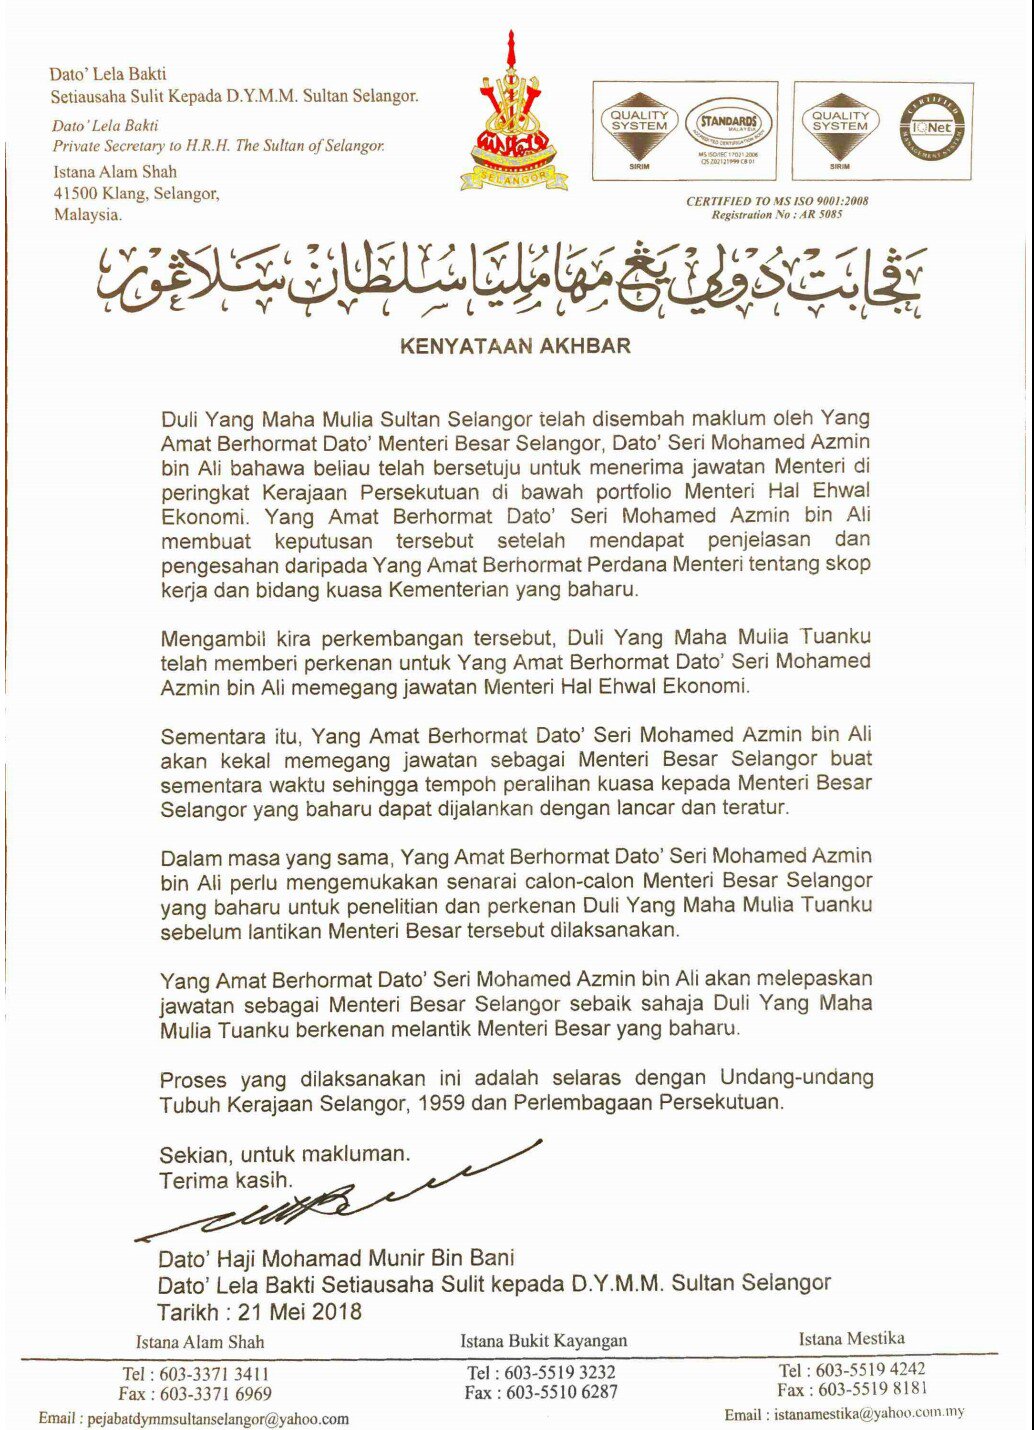 Dato' Lela Bakti
Setiausaha Sulit Kepada D.Y.M.M. Sultan Selangor.
Dato' Lela Bakti
Private Secretary to H.R.H. The Sultan of Selangor.
Istana Alam Shah
41500 Klang, Selangor,
Malaysia.
SELANGOR
QUALITY
SYSTEM
SIRIM
STANDARDS
MALAYSIA
MS ISO/IEC 17021:2006
QUALITY
SYSTEM
SIRIM
CERTIFIED
IQNet
MANAGEMENT SYSTEM
CERTIFIED TO MS ISO 9001:2008
Registration No : AR 5085
ڤجابت دولي يڠ مها مليا سلطان سلاڠور
KENYATAAN AKHBAR
Duli Yang Maha Mulia Sultan Selangor telah disembah maklum oleh Yang
Amat Berhormat Dato' Menteri Besar Selangor, Dato' Seri Mohamed Azmin
bin Ali bahawa beliau telah bersetuju untuk menerima jawatan Menteri di
peringkat Kerajaan Persekutuan di bawah portfolio Menteri Hal Ehwal
Ekonomi. Yang Amat Berhormat Dato' Seri Mohamed Azmin bin Ali
membuat keputusan tersebut setelah mendapat penjelasan dan
pengesahan daripada Yang Amat Berhormat Perdana Menteri tentang skop
kerja dan bidang kuasa Kementerian yang baharu.
Mengambil kira perkembangan tersebut, Duli Yang Maha Mulia Tuanku
telah memberi perkenan untuk Yang Amat Berhormat Dato' Seri Mohamed
Azmin bin Ali memegang jawatan Menteri Hal Ehwal Ekonomi.
Sementara itu, Yang Amat Berhormat Dato' Seri Mohamed Azmin bin Ali
akan kekal memegang jawatan sebagai Menteri Besar Selangor buat
sementara waktu sehingga tempoh peralihan kuasa kepada Menteri Besar
Selangor yang baharu dapat dijalankan dengan lancar dan teratur.
Dalam masa yang sama, Yang Amat Berhormat Dato' Seri Mohamed Azmin
bin Ali perlu mengemukakan senarai calon-calon Menteri Besar Selangor
yang baharu untuk penelitian dan perkenan Duli Yang Maha Mulia Tuanku
sebelum lantikan Menteri Besar tersebut dilaksanakan.
Yang Amat Berhormat Dato' Seri Mohamed Azmin bin Ali akan melepaskan
jawatan sebagai Menteri Besar Selangor sebaik sahaja Duli Yang Maha
Mulia Tuanku berkenan melantik Menteri Besar yang baharu.
Proses yang dilaksanakan ini adalah selaras dengan Undang-undang
Tubuh Kerajaan Selangor, 1959 dan Perlembagaan Persekutuan.
Sekian, untuk makluman.
Terima kasih.
Dato' Haji Mohamad Munir Bin Bani
Dato' Lela Bakti Setiausaha Sulit kepada D.Y.M.M. Sultan Selangor
Tarikh : 21 Mei 2018
Istana Alam Shah
Tel : 603-3371 3411
Fax : 603-3371 6969
Email : pejabatdymmsultanselangor@yahoo.com
Istana Bukit Kayangan
Tel : 603-5519 3232
Fax : 603-5510 6287
Istana Mestika
Tel : 603-5519 4242
Fax : 603-5519 8181
Email : istanamestika@yahoo.com.my